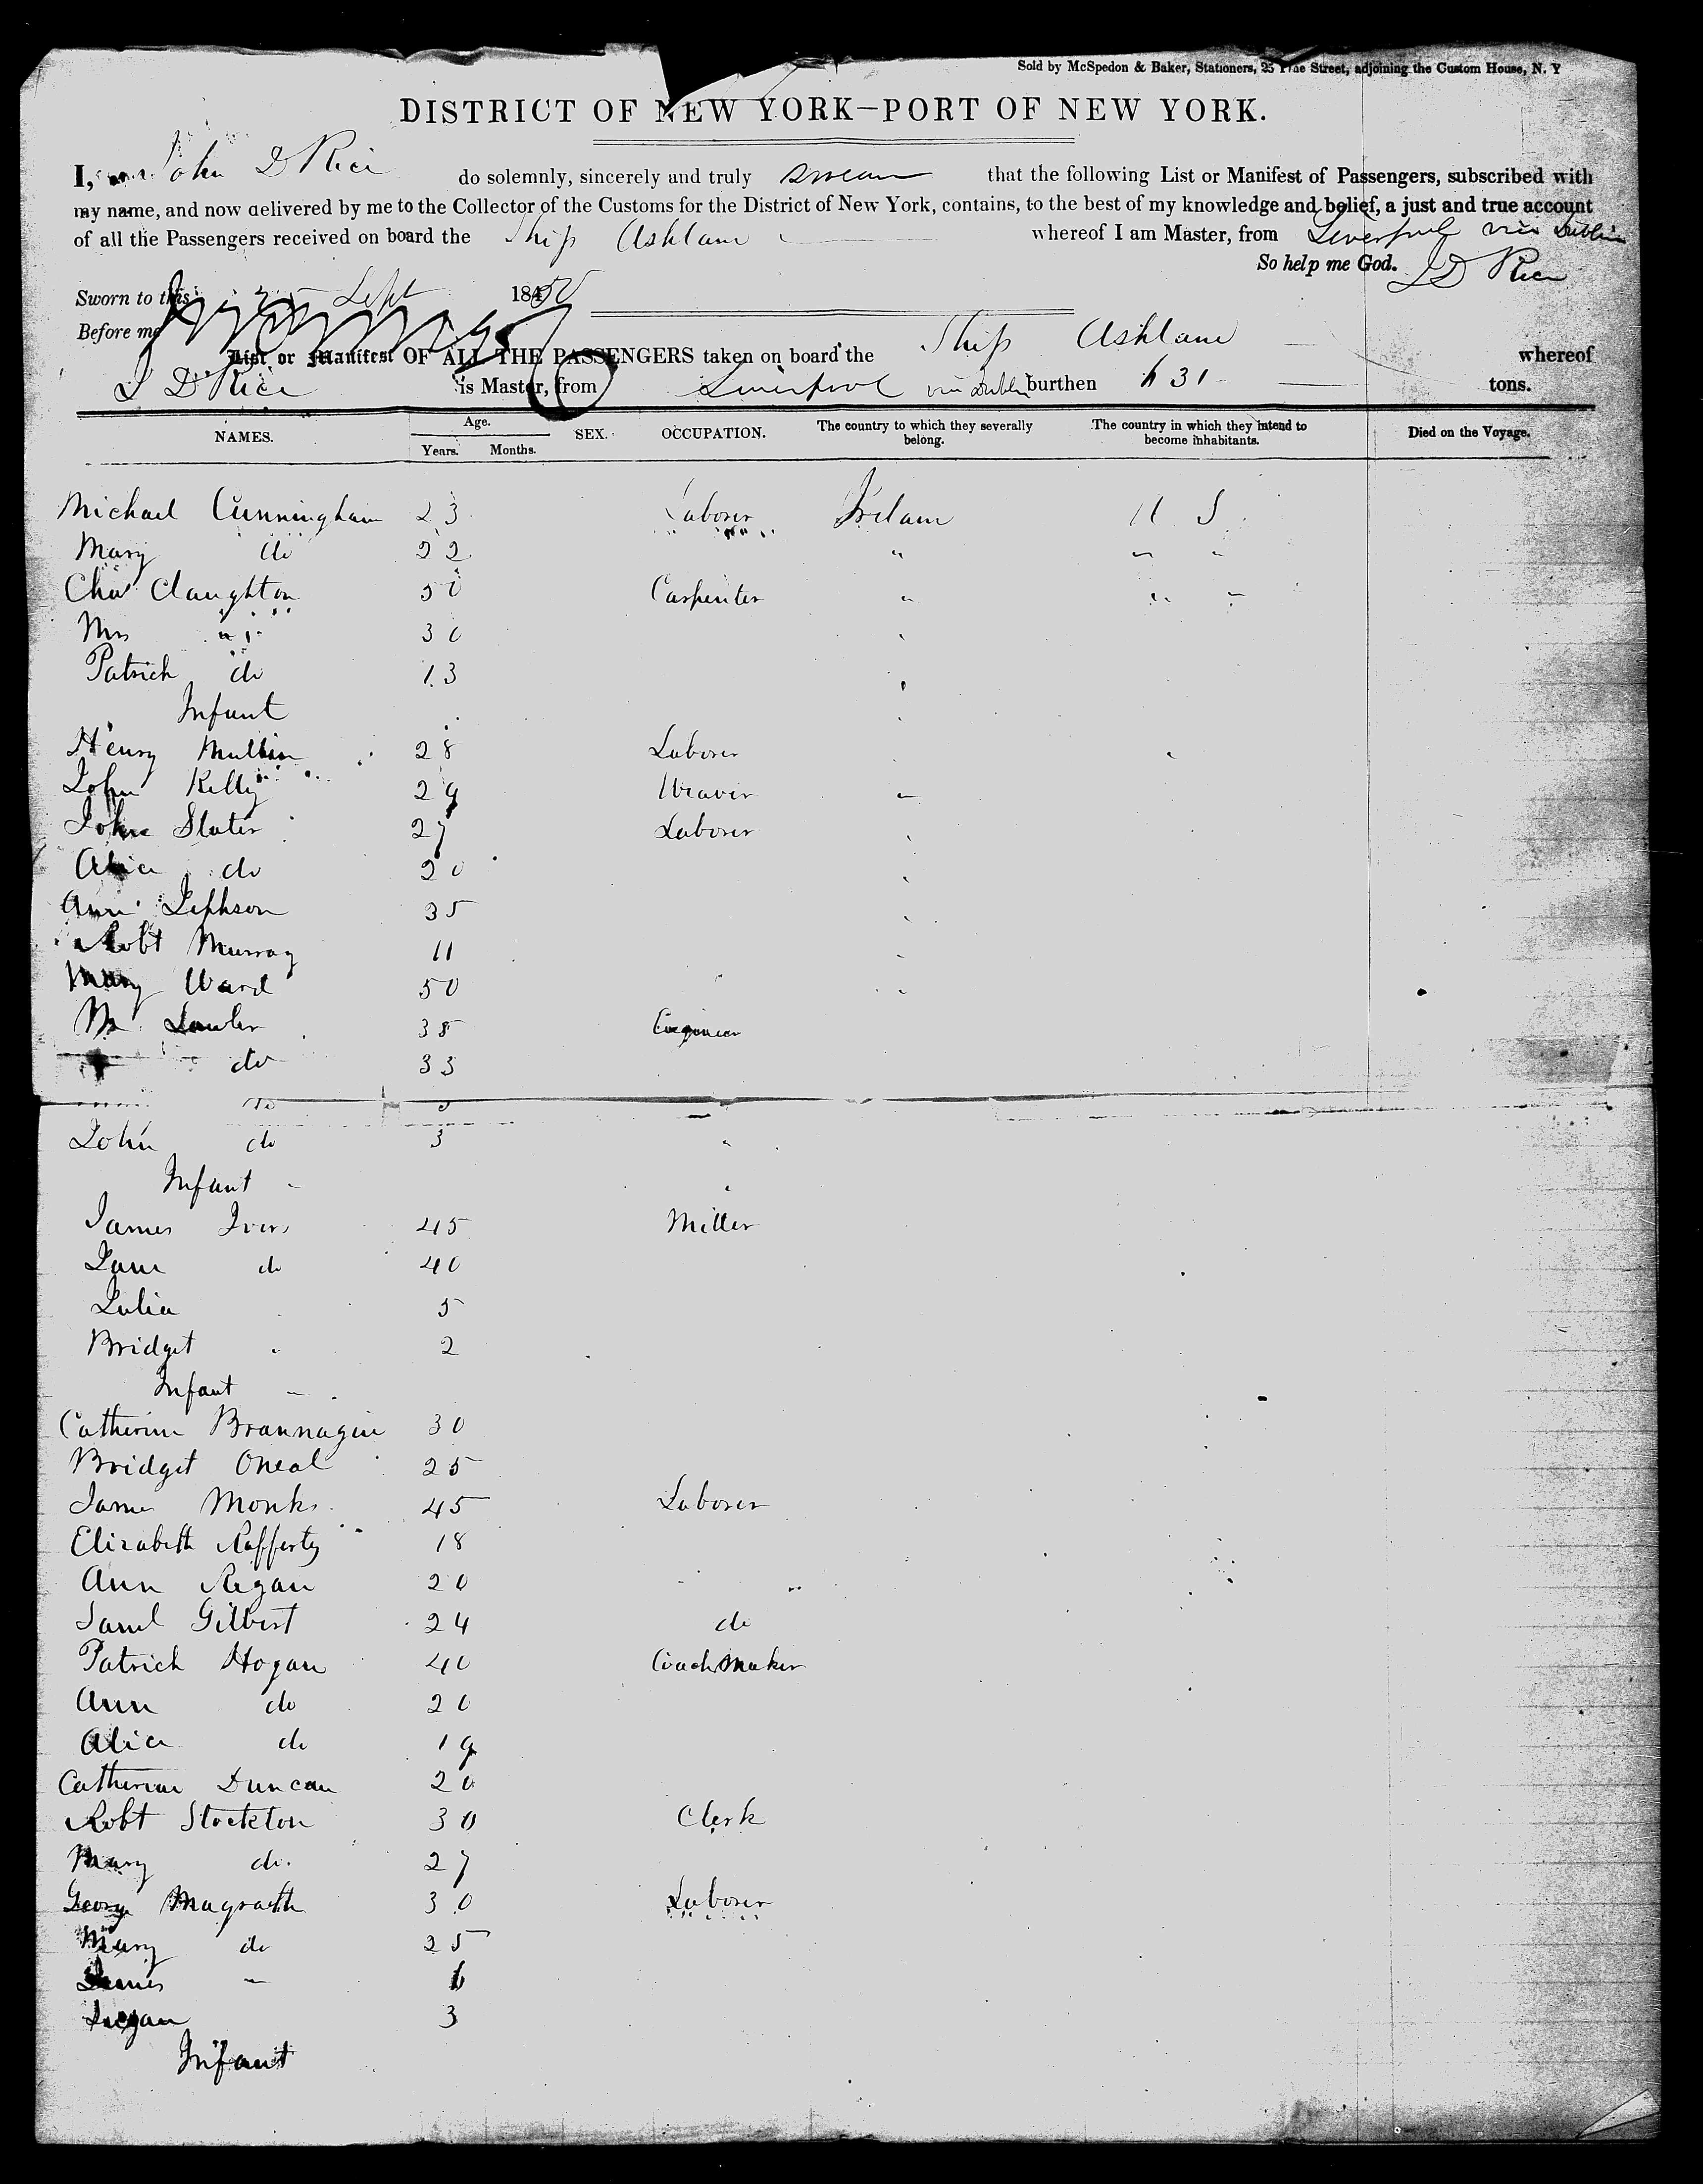 Sold by McSpedon & Baker, Stationers, 25 Pine Street, adjoining the Custom House, N. Y
DISTRICT OF NEW YORK—PORT OF NEW YORK.
I, John D Rice do solemnly, sincerely and truly swear that the following List or Manifest of Passengers, subscribed with
my name, and now delivered by me to the Collector of the Customs for the District of New York, contains, to the best of my knowledge and belief, a just and true account
of all the Passengers received on board the Ship Ashland whereof I am Master, from Liverpool via Dublin
So help me God. J D Rice
Sworn to this Sept 1850
Before me
List or Manifest OF ALL THE PASSENGERS taken on board the Ship Ashland whereof
J D Rice is Master, from Liverpool via Dublin burthen 631 tons.
NAMES. Age. Years. Months. SEX. OCCUPATION. The country to which they severally belong. The country in which they intend to become inhabitants. Died on the Voyage.
Michael Cunningham 23 Laborer Ireland U S
Mary do 22 " " "
Chas Claughton 50 Carpenter " " "
Mrs " 30
Patrick do 13
Infant
Henry Mullin 28 Laborer
John Kelly 29 Weaver "
John Slater 27 Laborer
Alice do 20
Ann Jephson 35
Robt Murray 11
Mary Ward 50
Lawler 38 Engineer
do 33
do
John do 3
Infant
James Ivers 45 Miller
Jane do 40
Julia 5
Bridget " 2
Infant
Catherine Brannagin 30
Bridget Oneal 25
James Monks 45 Laborer
Elizabeth Rafferty 18
Ann Regan 20
Saml Gilbert 24 do
Patrick Hogan 40 Coach Maker
Ann do 20
Alice do 19
Catherine Duncan 20
Robt Stockton 30 Clerk
Mary do 27
George Magrath 30 Laborer
Mary do 25
James 6
3
Infant